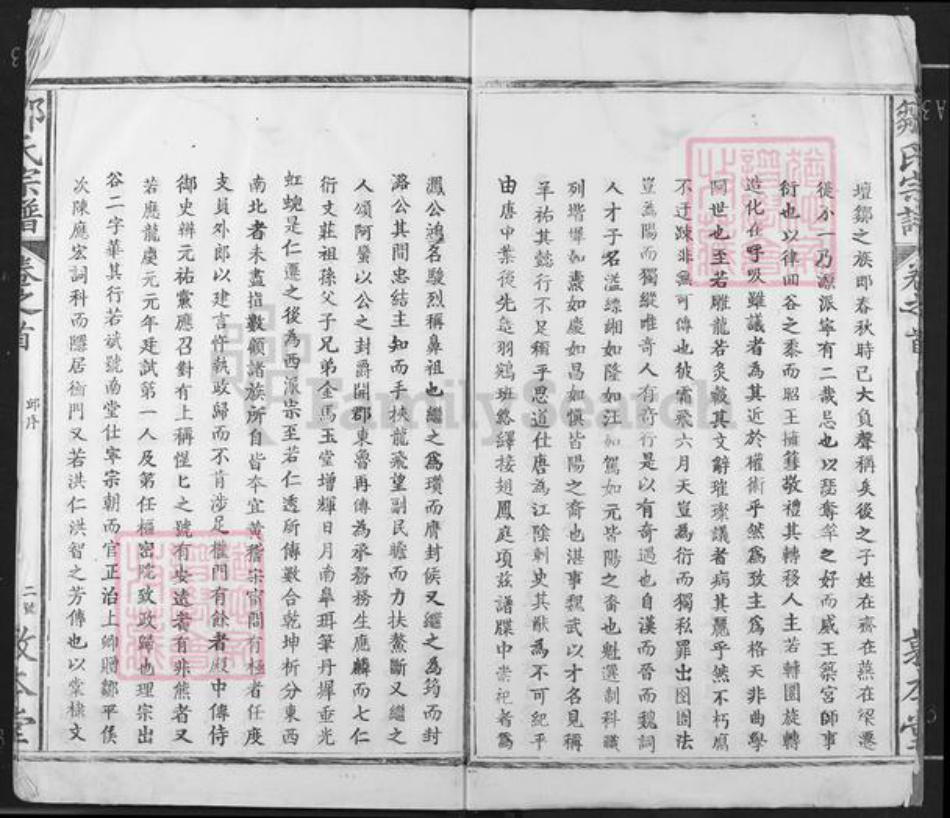 鄒氏宗譜
卷之首
壇鄒之族即春秋時已大負聲稱矣後之子姓在齊在燕在梁遷
徙不一乃源派寧有二哉忌也以琴奪牟之好而威王築宮師事
衍也以律回谷之黍而昭王擁篲敬禮其轉移人主若轉圜旋轉
造化在呼吸雖議者為其近於權術乎然為致主為格天非曲學
阿世也至若雕龍若炙轂其文辭璀璨議者病其麗乎然不朽腐
不迂踈非無可傳也彼霜飛六月天豈為衍而獨私羅出圄圉法
豈為陽而獨縱唯奇人有奇行是以有奇遇也自漢而晉而魏詞
人才子名溢縹緗如隆如汪如駕如元皆陽之裔也魁選制科躋
列堦墀如燾如慶如昌如慎皆陽之裔也湛事魏武以才名見稱
羊祜其懿行不足稱乎思道仕唐為江陰刺史其猷為不可紀乎
由唐中葉後先鳧羽鵷班絡繹接翅鳳庭項茲譜牒中崇祀者為
灄公鴻名駿烈稱鼻祖也繼之為瓚而膺封侯又繼之為筠而封
潞公其間忠結主知而手挾龍飛望副民瞻而力扶鰲斷又繼之
人頌阿蠒以公之封爵開郡東魯再傳為承務務生應麟而七仁
衍文莊祖孫父子兄弟金馬玉堂增輝日月南皋珥筆丹墀垂光
虹蜺是仁遷之後為西派宗至若仁透所傳數合乾坤析分東西
南北者未盡指數顧諸族所自皆本宜黃稽宗官間有極者任度
支員外郎以建言忤執政歸而不肯涉足權門有餘者殿中傳侍
御史辨元祐黨應召對有上稱惺匕之號有安遠者有非熊者又
若應龍慶元元年廷試第一人及第任樞密院致政歸也理宗出
谷二字華其行若斌號南堂仕寧宗朝而官正治上卿贈鄒平侯
次陳應宏詞科而隱居衡門又若洪仁洪智之芳傳也以棠棣文
鄒氏宗譜
卷之首
邱序
二號
敦本堂